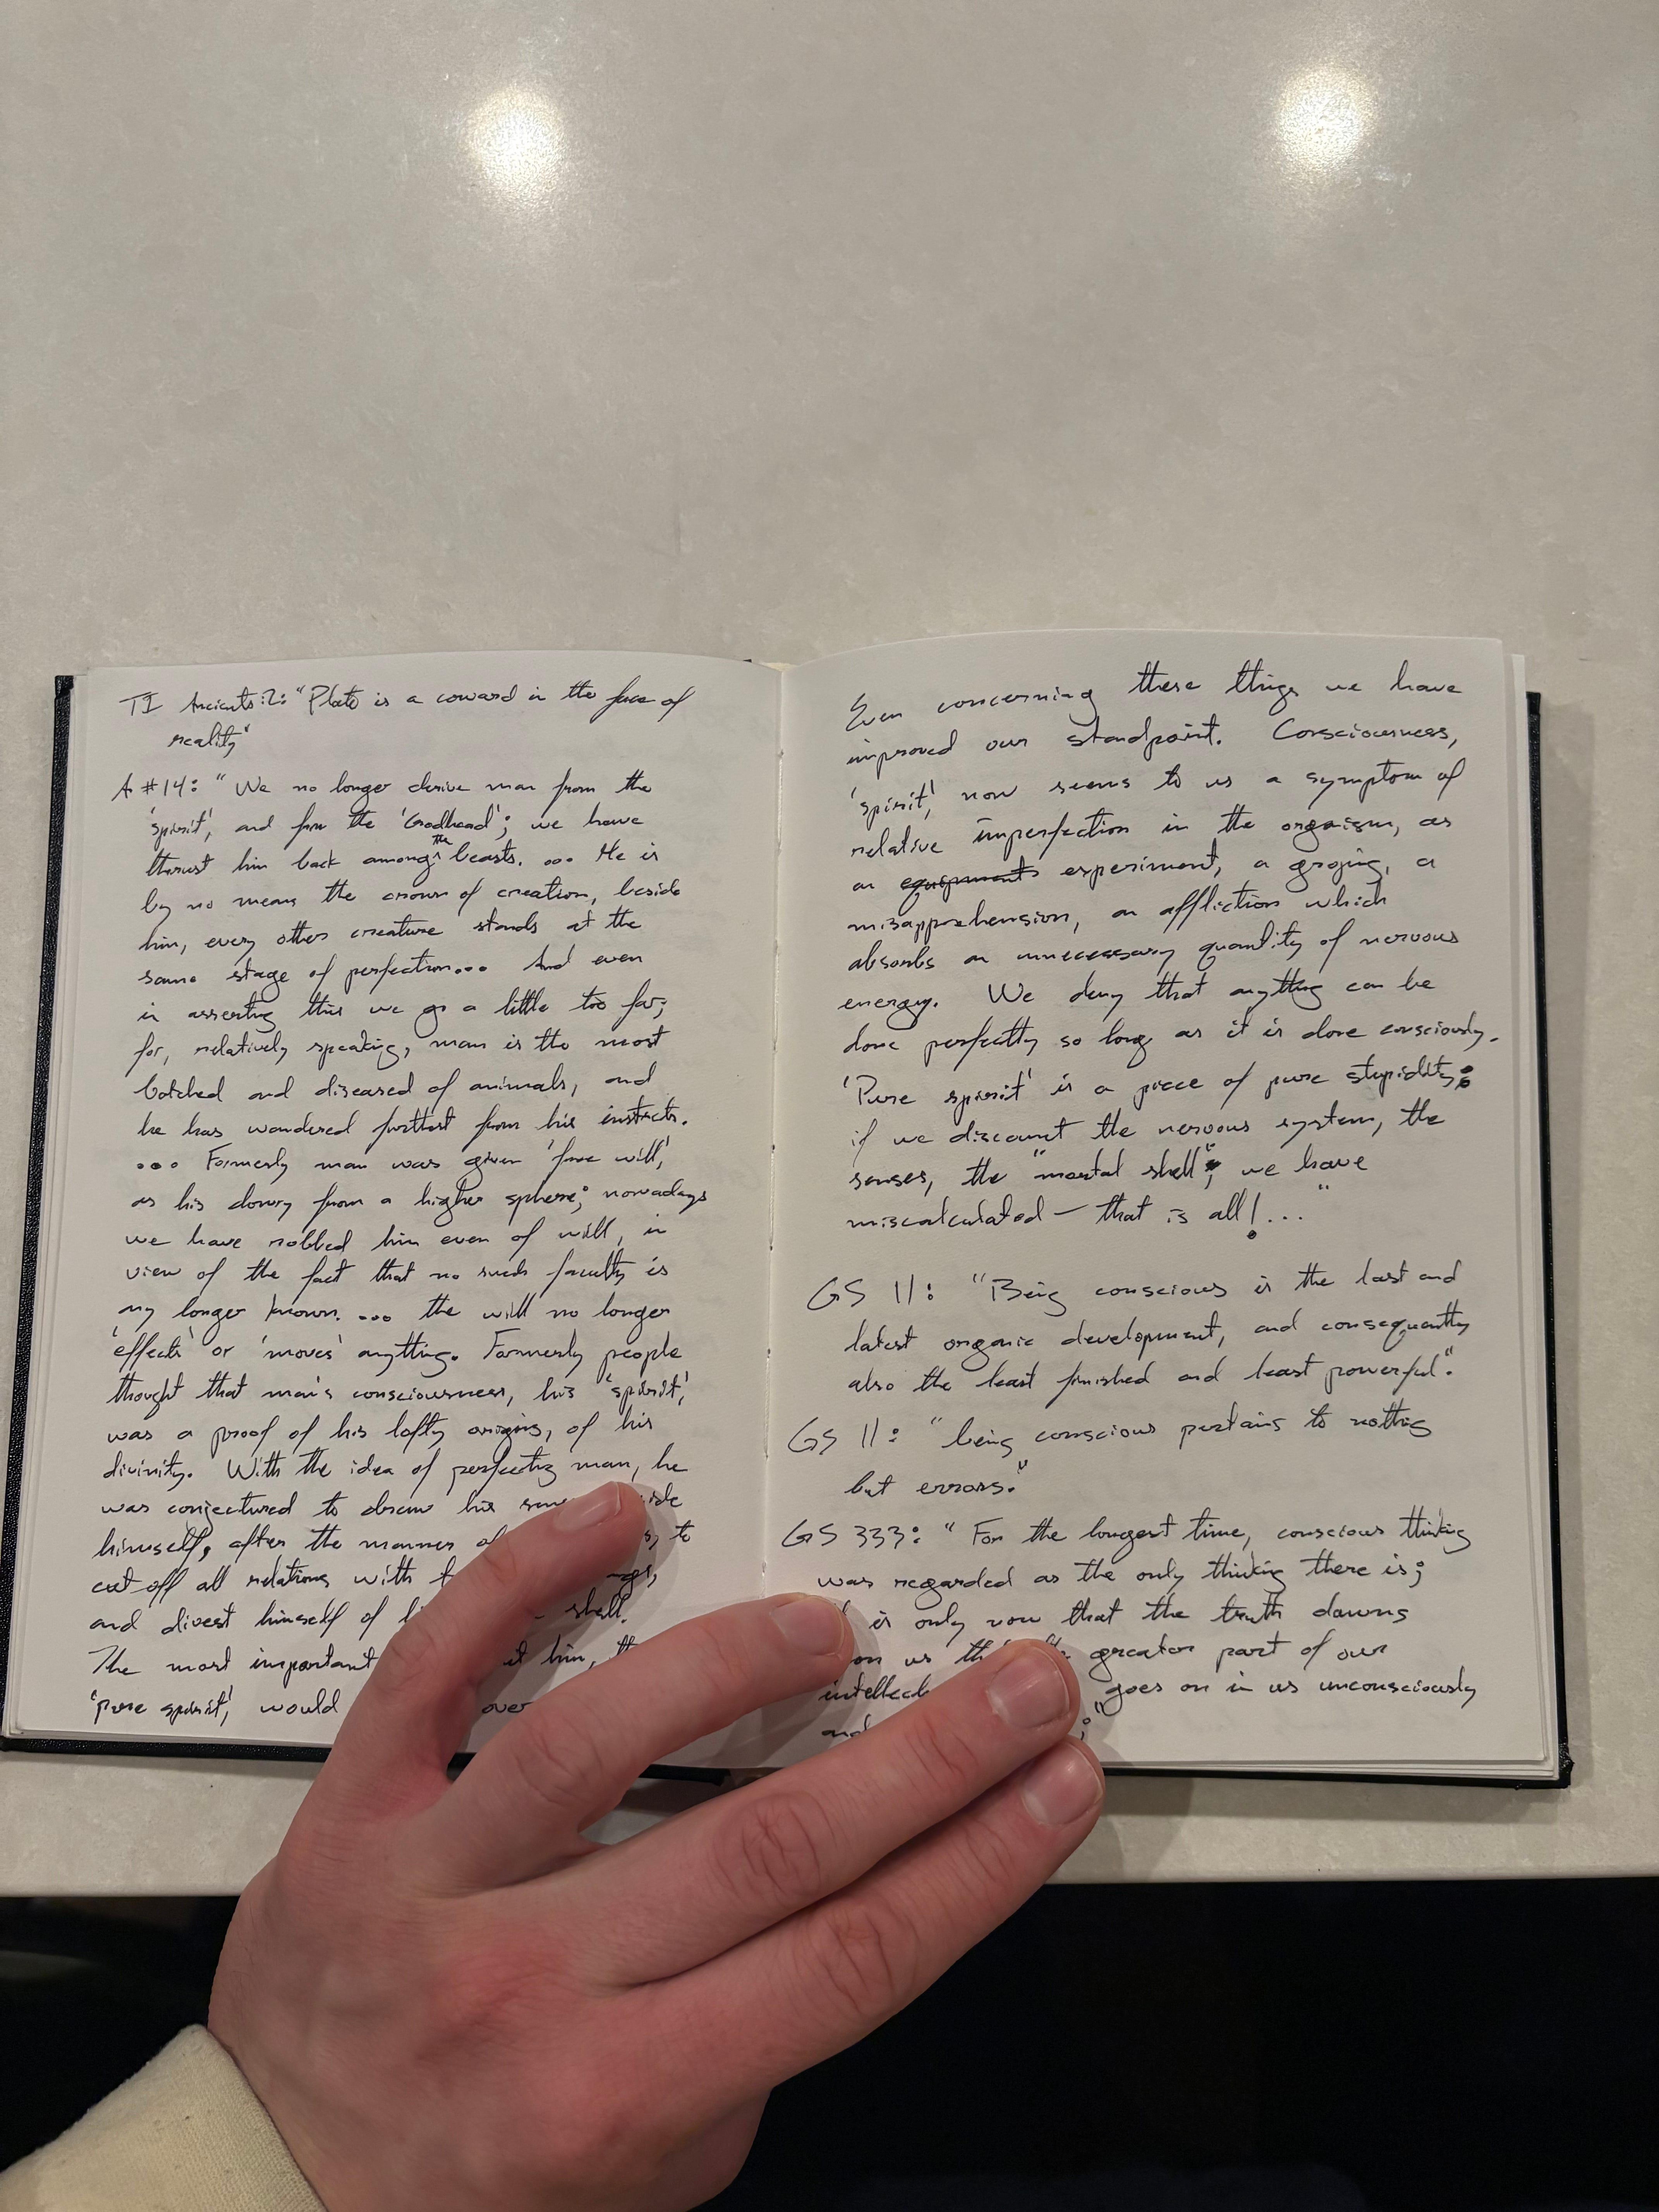 TI Ancients:2: "Plato is a coward in the face of
reality"
A #14: "We no longer derive man from the
'spirit', and from the 'Godhead'; we have
thrust him back among the beasts. ... He is
by no means the crown of creation, beside
him, every other creature stands at the
same stage of perfection... And even
in asserting this we go a little too far;
for, relatively speaking, man is the most
botched and diseased of animals, and
he has wandered furthest from his instincts.
... Formerly man was given 'free will',
as his dowry from a higher sphere; nowadays
we have robbed him even of will, in
view of the fact that no such faculty is
any longer known. ... the will no longer
'effects' or 'moves' anything. Formerly people
thought that man's consciousness, his 'spirit',
was a proof of his lofty origins, of his
divinity. With the idea of perfecting man, he
was conjectured to draw his
himself, after the manner to
cut off all relations with
and divest himself of shell.
The most important him,
'pure spirit', would over
Even concerning these things we have
improved our standpoint. Consciousness,
'spirit', now seems to us a symptom of
relative imperfection in the organism, as
an equipments experiment, a groping, a
misapprehension, an affliction which
absorbs an unnecessary quantity of nervous
energy. We deny that anything can be
done perfectly so long as it is done consciously.
'Pure spirit' is a piece of pure stupidity;
if we discount the nervous system, the
senses, the "mortal shell", we have
miscalculated — that is all!..."
GS 11: "Being conscious is the last and
latest organic development, and consequently
also the least finished and least powerful."
GS 11: "being conscious pertains to nothing
but errors."
GS 333: "For the longest time, conscious thinking
was regarded as the only thinking there is;
is only now that the truth dawns
on us greater part of our
goes on in us unconsciously